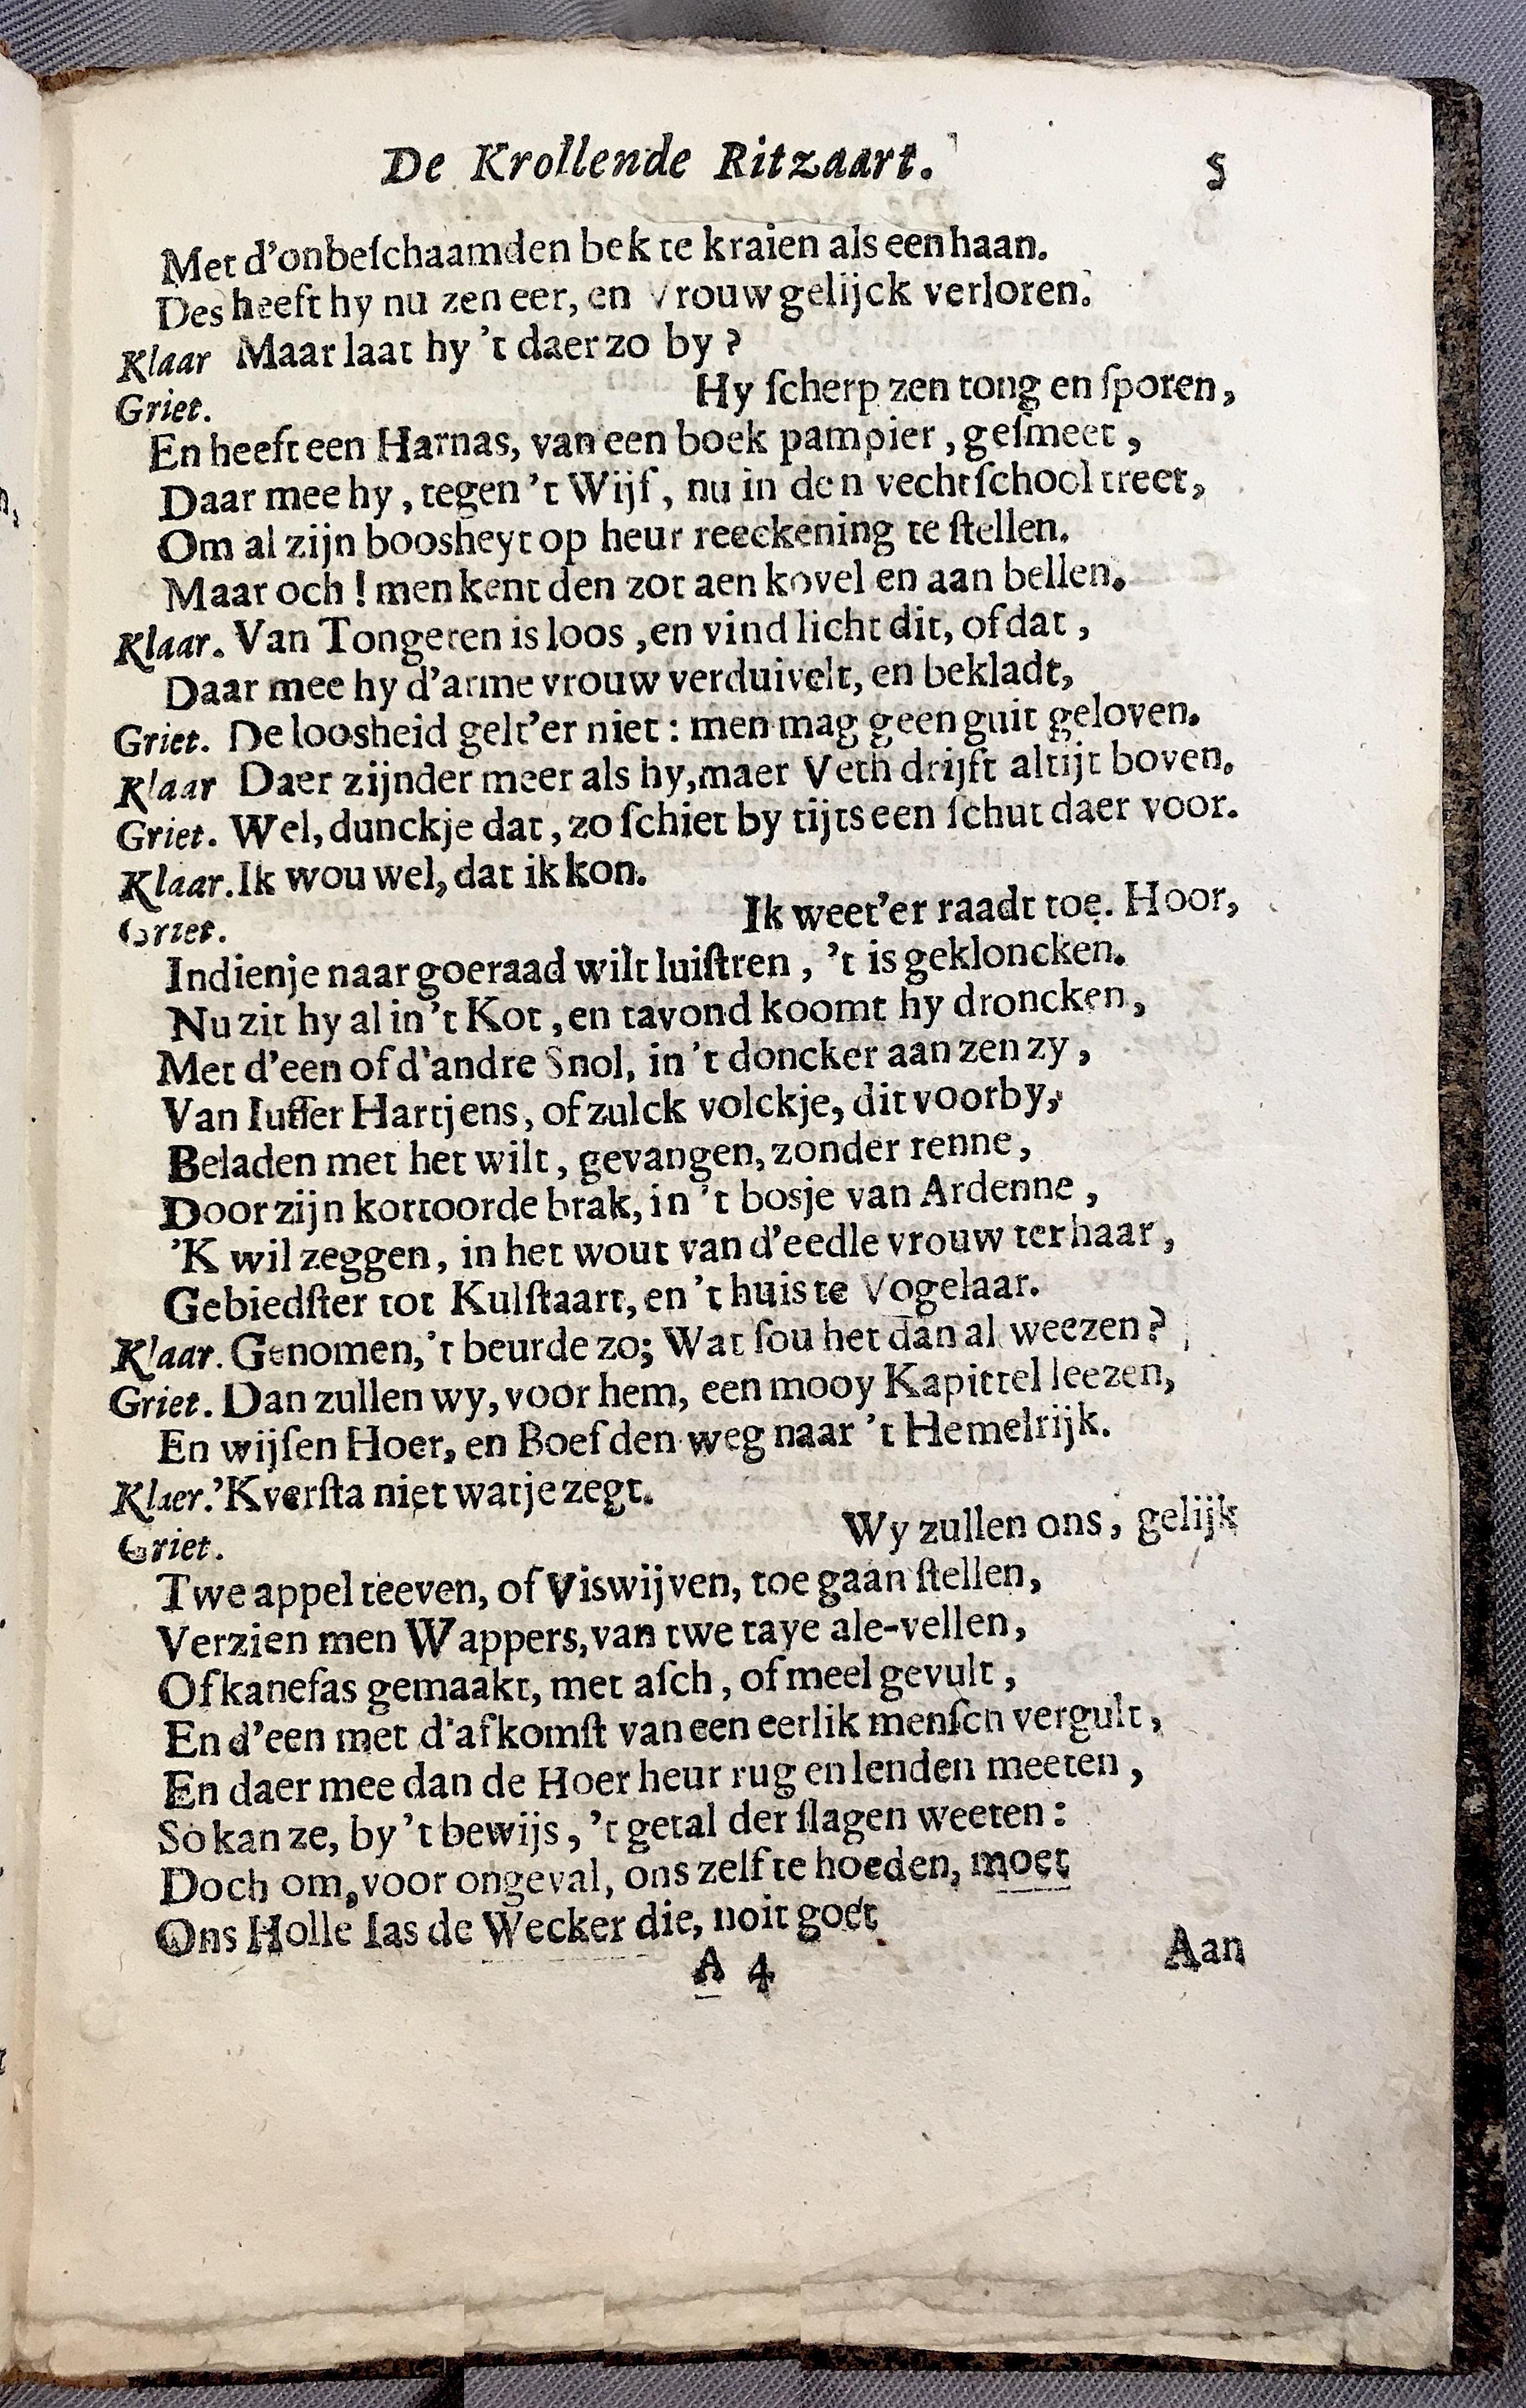 De Krollende Ritzaart. 5
Met d'onbeſchaamden bek te kraien als een haan.
Des heeft hy nu zen eer, en Vrouw gelijck verloren.
Klaar Maar laat hy 't daer zo by ?
Hy ſcherp zen tong en ſporen,
Griet.
En heeft een Harnas, van een boek pampier, geſmeet,
Daar mee hy, tegen 't Wijf, nu in den vechtſchool treet,
Om al zijn boosheyt op heur reeckening te ſtellen.
Maar och ! men kent den zot aen kovel en aan bellen.
Klaar. Van Tongeren is loos, en vind licht dit, of dat,
Daar mee hy d'arme vrouw verduivelt, en bekladt,
Griet. De loosheid gelt'er niet : men mag geen guit geloven.
Klaar Daer zijnder meer als hy, maer Veth drijft altijt boven.
Griet. Wel, dunckje dat, zo ſchiet by tijts een ſchut daer voor.
Klaar. Ik wou wel, dat ik kon.
Ik weet'er raadt toe. Hoor,
Griet.
Indienje naar goeraad wilt luiſtren, 't is gekloncken.
Nu zit hy al in 't Kot, en tavond koomt hy droncken,
Met d'een of d'andre Snol, in 't doncker aan zen zy,
Van Iuffer Hartjens, of zulck volckje, dit voorby,
Beladen met het wilt, gevangen, zonder renne,
Door zijn kortoorde brak, in 't bosje van Ardenne,
'K wil zeggen, in het wout van d'eedle vrouw ter haar,
Gebiedſter tot Kulſtaart, en 't huis te Vogelaar.
Klaar. Genomen, 't beurde zo; Wat ſou het dan al weezen?
Griet. Dan zullen wy, voor hem, een mooy Kapittel leezen,
En wijſen Hoer, en Boef den weg naar 't Hemelrijk.
Klaer. 'K verſta niet watje zegt.
Wy zullen ons, gelijk
Griet.
Twe appel teeven, of Viswijven, toe gaan ſtellen,
Verzien men Wappers, van twe taye ale-vellen,
Of kanefas gemaakt, met aſch, of meel gevult,
En d'een met d'afkomſt van een eerlik menſch vergult,
En daer mee dan de Hoer heur rug en lenden meeten,
So kan ze, by 't bewijs, 't getal der ſlagen weeten :
Doch om, voor ongeval, ons zelf te hoeden, moet
Ons Holle Ias de Wecker die, noit goet
A 4 Aan